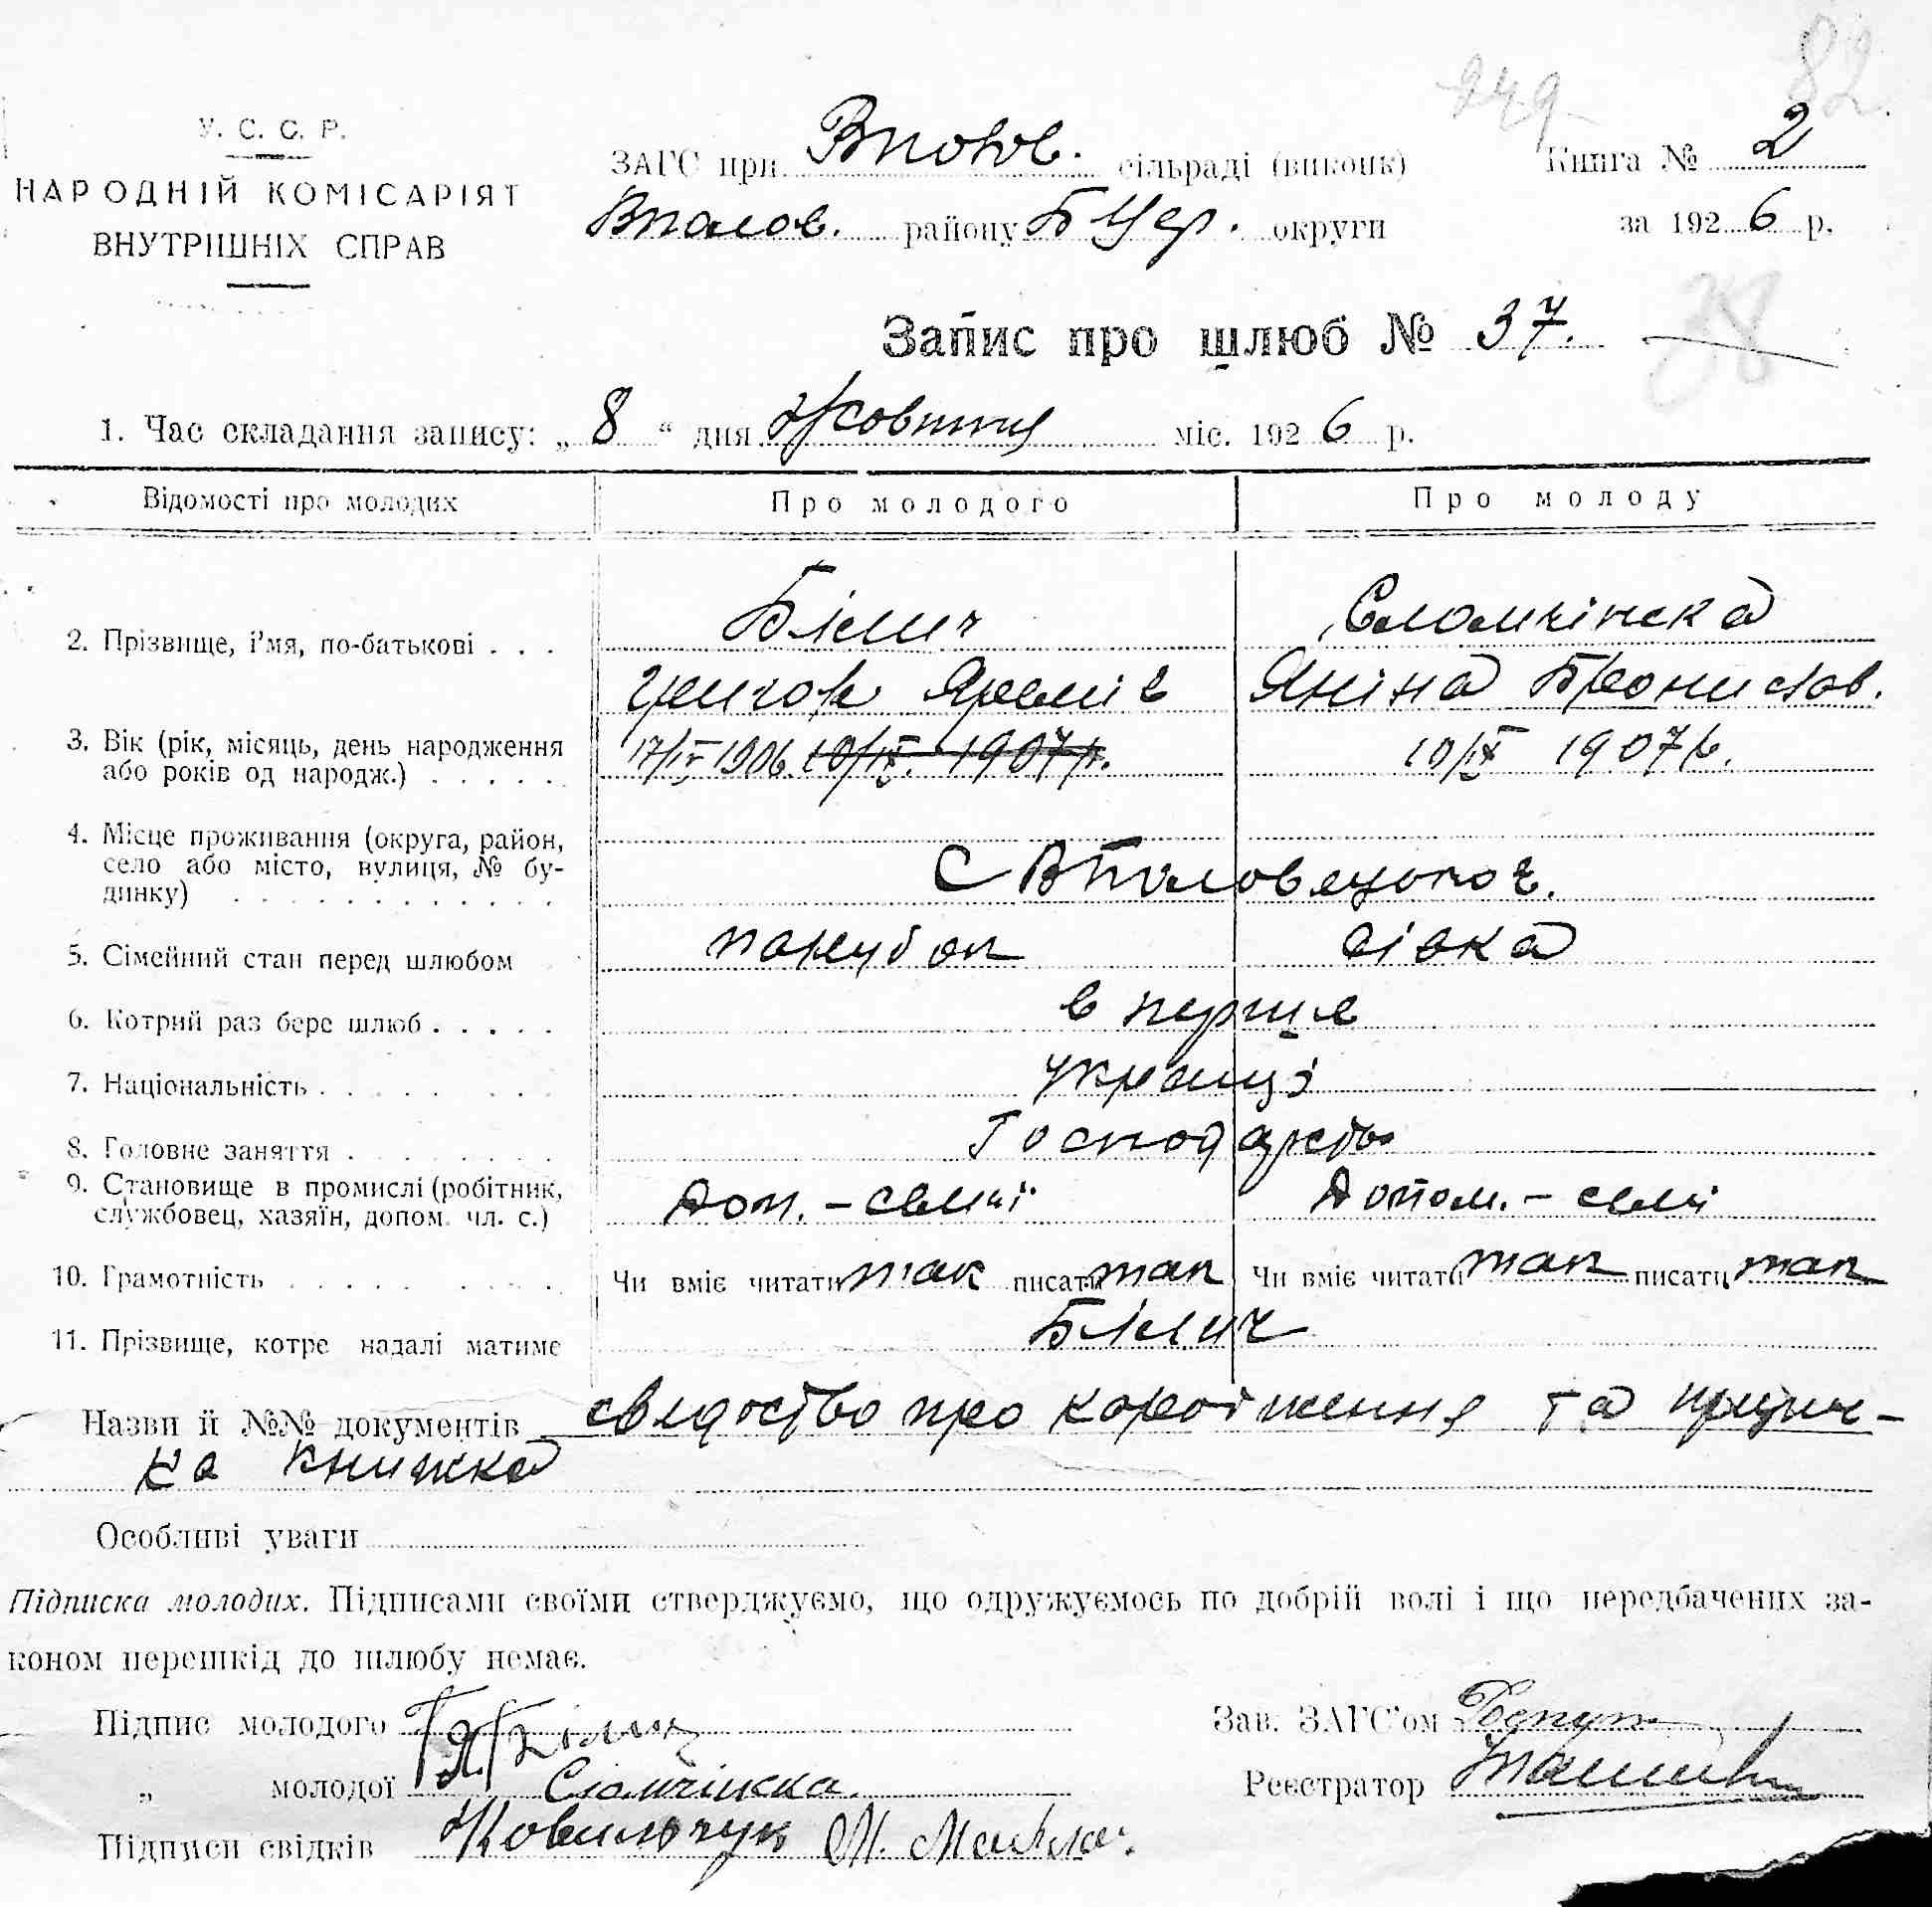 249
82
У. С. С. Р.
НАРОДНІЙ КОМІСАРІЯТ
ВНУТРІШНІХ СПРАВ
ЗАГС при сільраді (виконк)
району Б Цер. округи
Книга № 2
за 1926 р.
Запис про шлюб № 37.
38
1. Час складання запису: „ 8 “ дня Жовтня міс. 1926 р.
Відомості про молодих Про молодого Про молоду
2. Прізвище, і'мя, по-батькові . . . Білич Сломчінска
Григор Яремів Яніна Бронислов.
3. Вік (рік, місяць, день народження 17/IV 1906 10/IX. 1907р. 10/IX 1907р.
або років од народж.)
4. Місце проживання (округа, район,
село або місто, вулиця, № бу-
динку) С
5. Сімейний стан перед шлюбом парубок дівка
6. Котрий раз бере шлюб в перше
7. Національність українці
8. Головне заняття Господарство
9. Становище в промислі (робітник, Доп. – семьї Допом. – семьї
службовец, хазяїн, допом. чл. с.)
10. Грамотність Чи вміє читати так писати так Чи вміє читати так писати так
11. Прізвище, котре надалі матиме Білич
Назви й №№ документів про та
ка книжка
Особливі уваги
Підписка молодих. Підписами своїми стверджуємо, що одружуємось по добрій волі і що передбачених за-
коном перешкід до шлюбу немає.
Підпис молодого Г Я Білич
„ молодої Я. Сломчінска
Підписи свідків М.
Зав. ЗАГС'ом
Реєстратор